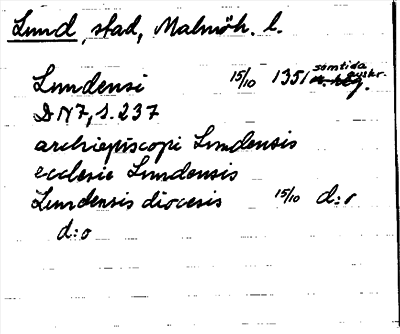 Lund, stad, Malmöh. l.
Lundensi 15/10 1351 samtida avskr.
DN 7, s. 237
archiepiscopi Lundensis
ecclesie Lundensis
Lundensis diocesis 15/10 d:o
d:o